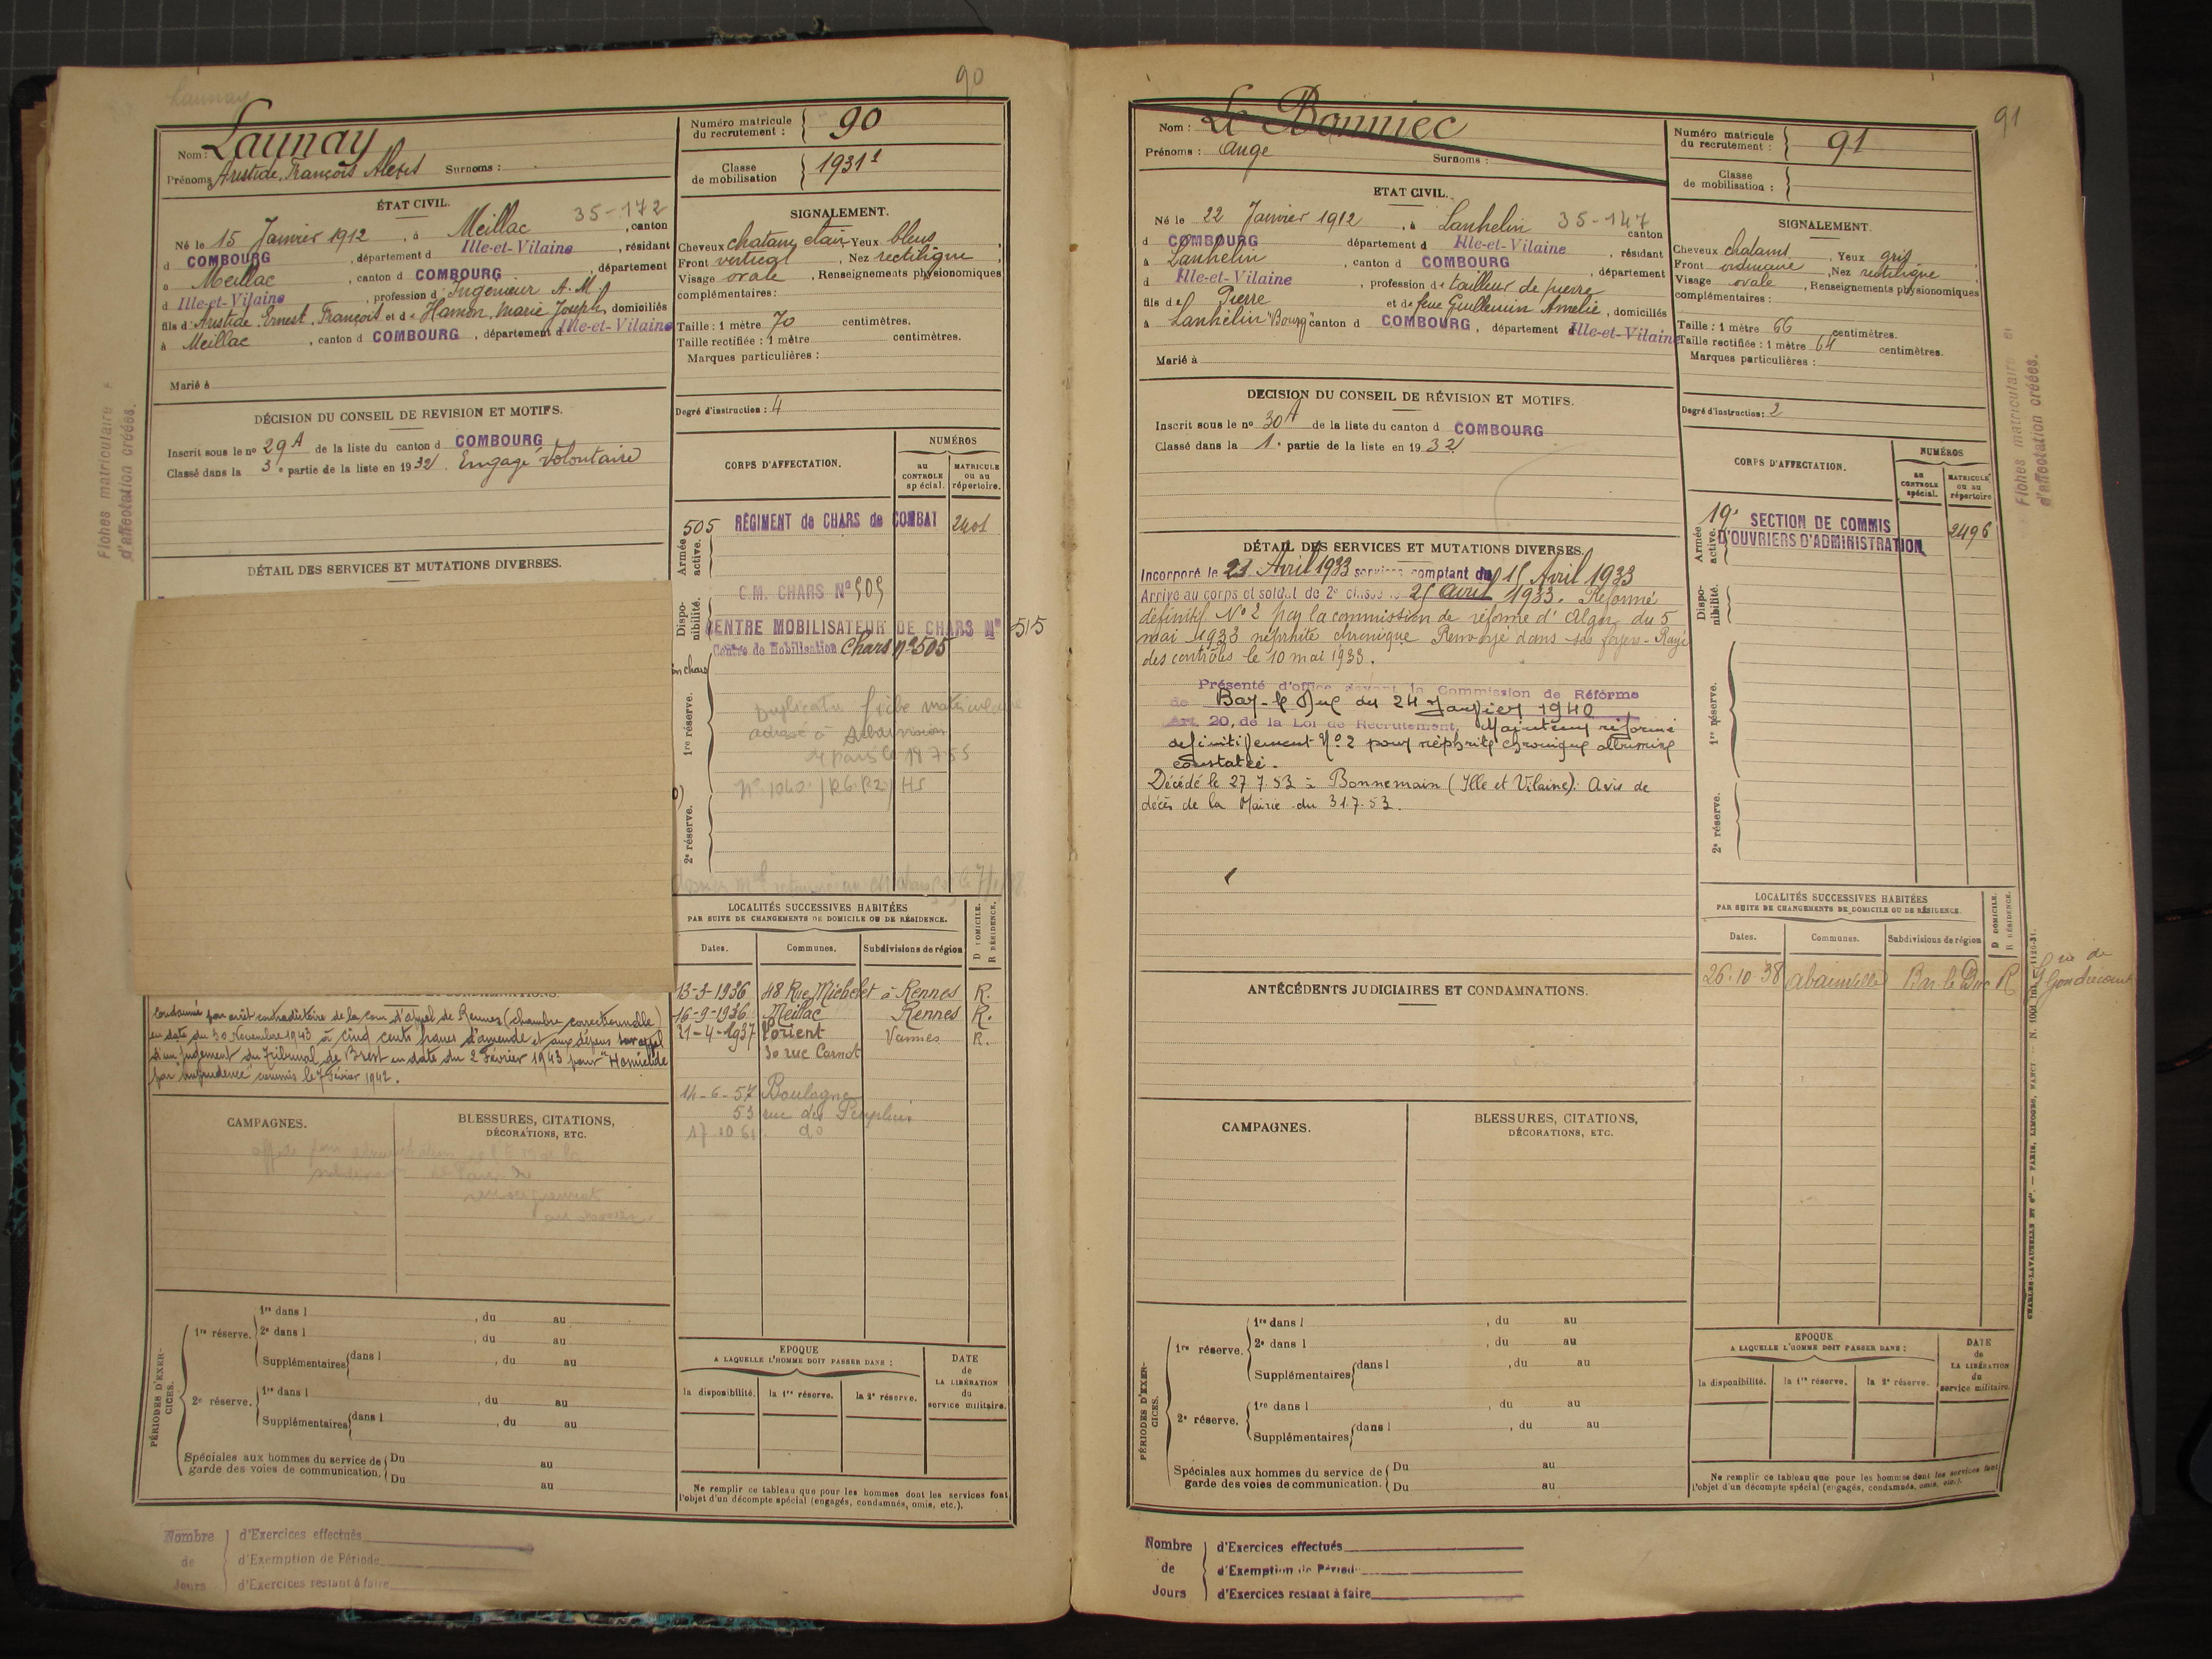 90
Launay
Nom : Launay
Prénoms Aristide, François Alexis Surnoms :
Numéro matricule du recrutement : 90
Classe de mobilisation 1931
ÉTAT CIVIL.
35-172
Né le 15 Janvier 1912, à Meillac, canton
d COMBOURG, département d Ille-et-Vilaine, résidant
à Meillac, canton d COMBOURG, département
d Ille-et-Vilaine, profession d Ingénieur A.M.
fils d Aristide Ernest François et de Hamon, Marie Joseph, domiciliés
à Meillac, canton d COMBOURG, département d Ille-et-Vilaine
Marié à
SIGNALEMENT.
Cheveux chatain clair Yeux bleus,
Front vertical, Nez rectiligne,
Visage ovale, Renseignements physionomiques
complémentaires :
Taille : 1 mètre 70 centimètres.
Taille rectifiée : 1 mètre centimètres.
Marques particulières :
Degré d'instruction : 4
Fiches matriculaire
d'affectation créées.
DÉCISION DU CONSEIL DE REVISION ET MOTIFS.
Inscrit sous le nº 29 A de la liste du canton d COMBOURG
Classé dans la 3e partie de la liste en 1932. Engagé volontaire
DÉTAIL DES SERVICES ET MUTATIONS DIVERSES.
CORPS D'AFFECTATION.
NUMÉROS
au CONTROLE spécial.
MATRICULE ou au répertoire.
Armée active.
505 RÉGIMENT de CHARS de COMBAT 2401
Disponibilité.
C.M. CHARS Nº 505
CENTRE MOBILISATEUR DE CHARS Nº 515
Centre de Mobilisation Chars nº 505
1re réserve.
Duplicata fiche matriculaire
adressé à Subdivision
2e réserve.
LOCALITÉS SUCCESSIVES HABITÉES
PAR SUITE DE CHANGEMENTS DE DOMICILE OU DE RÉSIDENCE.
Dates. Communes. Subdivisions de région D DOMICILE. R RÉSIDENCE.
13-3-1936 48 Rue Michelet à Rennes R.
16-9-1936 Meillac Rennes R.
21-4-1937 Lorient Vannes R.
30 rue Carnot
14-6-57 Boulogne
53 rue des Peupliers
17-10-61 do
Condamné par arrêt contradictoire de la cour d'appel de Rennes (chambre correctionnelle)
en date du 30 Novembre 1943 à cinq cents francs d'amende et aux dépens sur appel
d'un jugement du Tribunal de Brest en date du 2 Février 1943 pour "Homicide
par imprudence" commis le 7 Février 1942.
CAMPAGNES.
BLESSURES, CITATIONS,
DÉCORATIONS, ETC.
PÉRIODES D'EXERCICES.
1re réserve. 1re dans l , du au
2e dans l , du au
Supplémentaires dans l , du au
2e réserve. 1re dans l , du au
Supplémentaires dans l , du au
Spéciales aux hommes du service de garde des voies de communication. Du au
Du au
EPOQUE
A LAQUELLE L'HOMME DOIT PASSER DANS :
la disponibilité. la 1re réserve. la 2e réserve.
DATE de LA LIBÉRATION du service militaire.
Ne remplir ce tableau que pour les hommes dont les services font
l'objet d'un décompte spécial (engagés, condamnés, omis, etc.).
Nombre de Jours
d'Exercices effectués
d'Exemption de Période
d'Exercices restant à faire
91
Nom : Le Bonniec
Prénoms : Ange Surnoms :
Numéro matricule du recrutement : 91
Classe de mobilisation :
ETAT CIVIL.
Né le 22 Janvier 1912, à Lanhelin 35-147 canton
d COMBOURG département d Ille-et-Vilaine, résidant
à Lanhelin, canton d COMBOURG, département
d Ille-et-Vilaine, profession d tailleur de pierre
fils de Pierre et de feue Guillemin Amélie, domiciliés
à Lanhélin "Bourg" canton d COMBOURG, département d Ille-et-Vilaine
Marié à
SIGNALEMENT.
Cheveux chatains, Yeux gris
Front ordinaire, Nez rectiligne
Visage ovale, Renseignements physionomiques
complémentaires :
Taille : 1 mètre 66 centimètres.
Taille rectifiée : 1 mètre 64 centimètres.
Marques particulières :
Degré d'instruction : 2
Fiches matriculaire et
d'affectation créées.
DECISION DU CONSEIL DE RÉVISION ET MOTIFS.
Inscrit sous le nº 30 A de la liste du canton d COMBOURG
Classé dans la 1e partie de la liste en 1932
DÉTAIL DES SERVICES ET MUTATIONS DIVERSES.
Incorporé le 23 Avril 1933 services comptant du 15 Avril 1933
Arrivé au corps et soldat de 2e classe le 25 avril 1933. Réformé
définitif Nº 2 par la commission de réforme d'Alger du 5
mai 1933 néphrite chronique Renvoyé dans ses foyers - Rayé
des contrôles le 10 mai 1933.
Présenté d'office devant la Commission de Réforme
de Bar-le-Duc du 24 Janvier 1940
Art. 20, de la Loi de Recrutement. Maintenu réformé
définitivement Nº 2 pour néphrite chronique albumine
constatée.
Décédé le 27.7.53 à Bonnemain (Ille et Vilaine). Avis de
décès de la Mairie du 31.7.53.
CORPS D'AFFECTATION.
NUMÉROS
au CONTROLE spécial.
MATRICULE ou au répertoire
Armée active.
19e SECTION DE COMMIS
D'OUVRIERS D'ADMINISTRATION 2496
Disponibilité.
1re réserve.
2e réserve.
LOCALITÉS SUCCESSIVES HABITÉES
PAR SUITE DE CHANGEMENTS DE DOMICILE OU DE RÉSIDENCE.
Dates. Communes. Subdivisions de région D DOMICILE. R RÉSIDENCE.
26.10.38 Abainville Bar-le-Duc R rue de Gondrecourt
ANTÉCÉDENTS JUDICIAIRES ET CONDAMNATIONS.
CAMPAGNES.
BLESSURES, CITATIONS,
DÉCORATIONS, ETC.
PÉRIODES D'EXERCICES.
1re réserve. 1re dans l , du au
2e dans l , du au
Supplémentaires dans l , du au
2e réserve. 1re dans l , du au
Supplémentaires dans l , du au
Spéciales aux hommes du service de garde des voies de communication. Du au
Du au
EPOQUE
A LAQUELLE L'HOMME DOIT PASSER DANS :
la disponibilité. la 1re réserve. la 2e réserve.
DATE de LA LIBÉRATION du service militaire.
Ne remplir ce tableau que pour les hommes dont les services font
l'objet d'un décompte spécial (engagés, condamnés, omis, etc.).
CHARLES-LAVAUZELLE ET Cie. — PARIS, LIMOGES, NANCY
Nombre de Jours
d'Exercices effectués
d'Exemption de Période
d'Exercices restant à faire